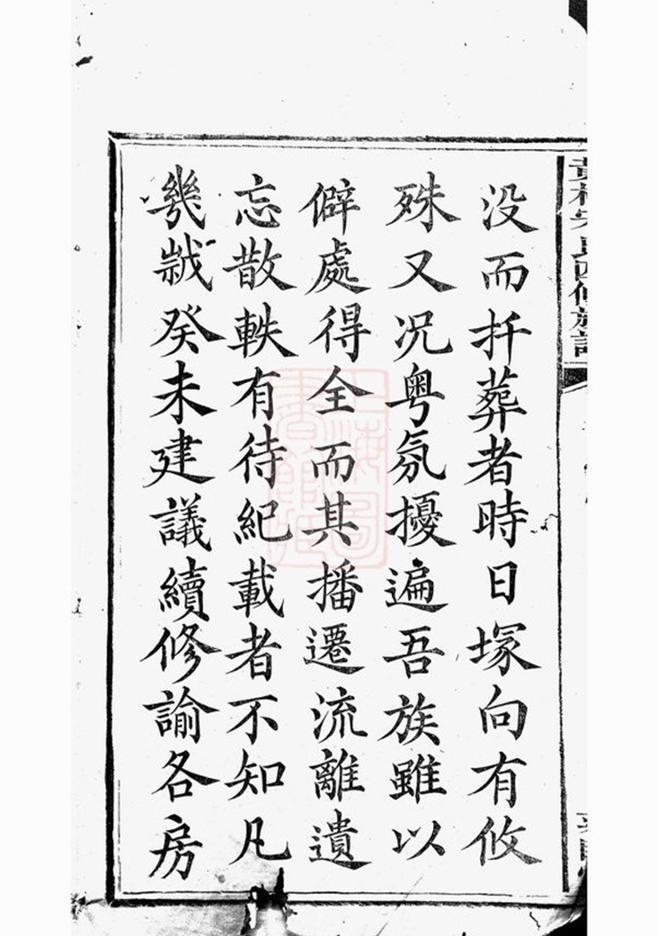 没而扦葬者時日塚向有攸
殊又况粤氛擾遍吾族雖以
僻處得全而其播遷流離遺
忘散軼有待紀載者不知凡
幾茲癸未建議續修諭各房